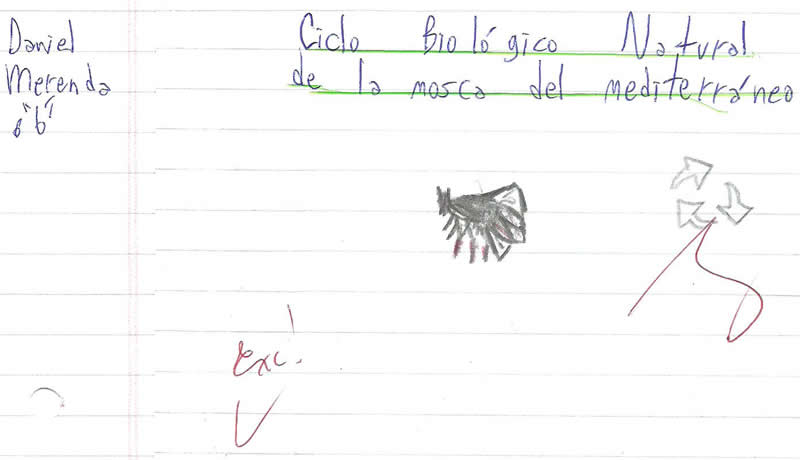 Daniel
Merenda
6 "b"
Ciclo Biológico Natural
de la mosca del mediterráneo
Exc.